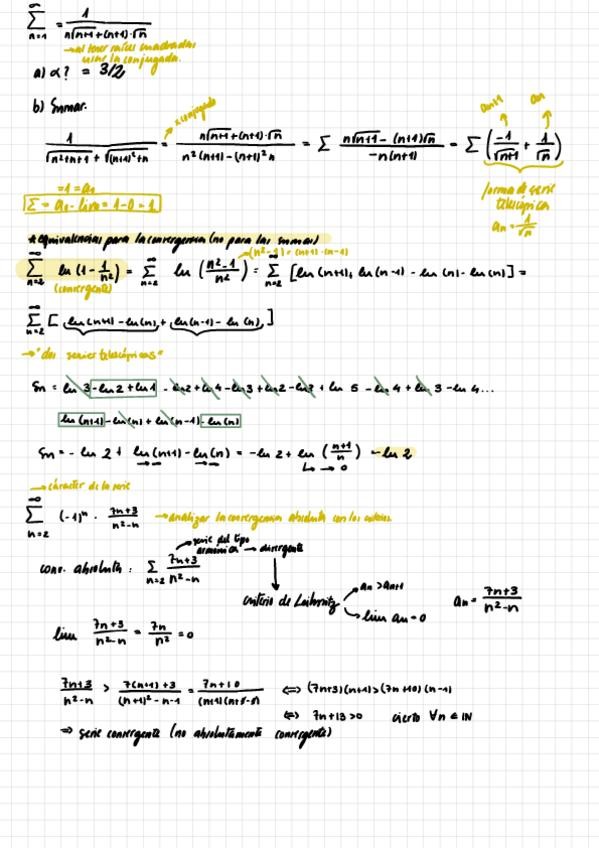 ∞ Σ n=1 = 1 / (n√n+1 + (n+1)·√n)
→ al tener raíces cuadradas
usar la conjugada.
a) α? = 3/2
b) Sumar.
an+1 an
x conjugado
1 / (√n²+n+1 + √(n+1)²+n) = (n√n+1 + (n+1)·√n) / (n²(n+1) - (n+1)²n) = Σ (n√n+1 - (n+1)√n) / (-n(n+1)) = Σ (-1/√n+1 + 1/√n)
forma de serie
telescópica
an = 1/√n
=1 = a1
Σ = a1 - lim = 1-0 = 1
* equivalencias para la convergencia (no para las sumas)
(n²-1) = (n+1)·(n-1)
∞ Σ n=2 ln (1 - 1/n²) = ∞ Σ n=2 ln (n²-1 / n²) = ∞ Σ n=2 [ln (n+1) + ln (n-1) - ln (n) - ln(n)] =
(convergente)
∞ Σ n=2 [ ln(n+1) - ln(n) + ln(n-1) - ln(n) ]
→ "dos series telescópicas"
Sn = ln 3 - ln 2 + ln 1 - ln 2 + ln 4 - ln 3 + ln 2 - ln 3 + ln 5 - ln 4 + ln 3 - ln 4 ...
ln (n+1) - ln(n) + ln(n-1) - ln(n)
Sn = - ln 2 + ln(n+1) - ln(n) = -ln 2 + ln (n+1 / n) = -ln 2
→ 0
→ carácter de la serie
∞ Σ n=2 (-1)ⁿ · 7n+3 / n²-n → analizar la convergencia absoluta con los criterios.
serie del tipo
armónica → divergente
conv. absoluta : Σ n=2 7n+3 / n²-n
criterio de Leibnitz
an > an+1
lim an = 0
an = 7n+3 / n²-n
lim 7n+3 / n²-n = 7n / n² = 0
7n+3 / n²-n > 7(n+1)+3 / (n+1)²-n-1 = 7n+10 / ⇔ (7n+3)(n+1) > (7n+10)(n-1)
⇔ 7n+13 > 0 cierto ∀n ∈ IN
⇒ serie convergente (no absolutamente convergente)